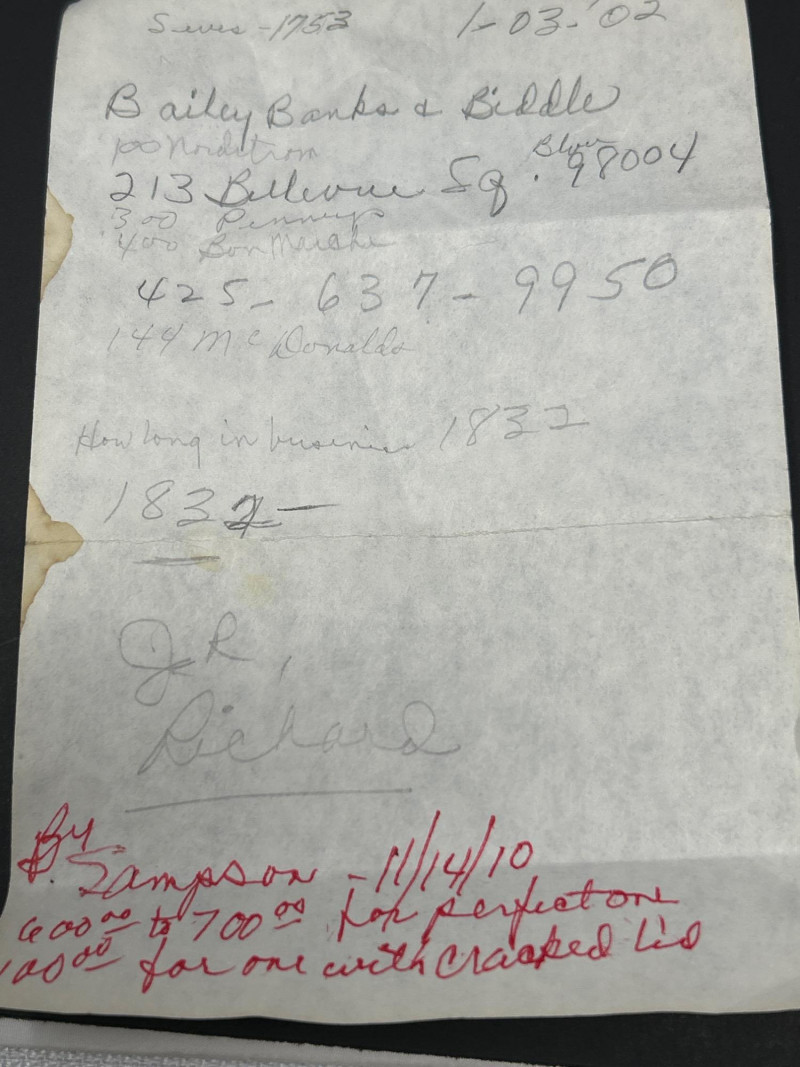 Sevres - 1753 1-03-'02
Bailey Banks & Biddle
100 Nordstrom
213 Bellevue Sq. Blvue 98004
300 Penneys
400 Bon Marche
425-637-9950
144 McDonalds
How long in business 1832
1832 -
JR,
Richard
By
Sampson - 11/14/10
600.00 to 700.00 for perfect one
100.00 for one with cracked lid